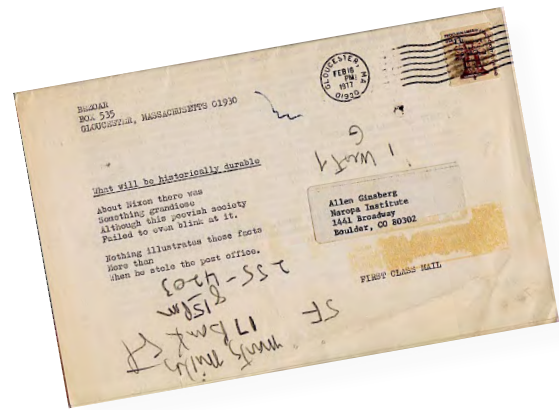 BEZOAR
BOX 535
GLOUCESTER, MASSACHUSETTS 01930
GLOUCESTER, MA
FEB 16
PM
1977
01930
What will be historically durable
About Nixon there was
Something grandiose
Although this peevish society
Failed to even blink at it.
Nothing illustrates these facts
More than
When he stole the post office.
Allen Ginsberg
Naropa Institute
1441 Broadway
Boulder, CO 80302
FIRST CLASS MAIL
SF
17 Bank
8 15pm
255-4203